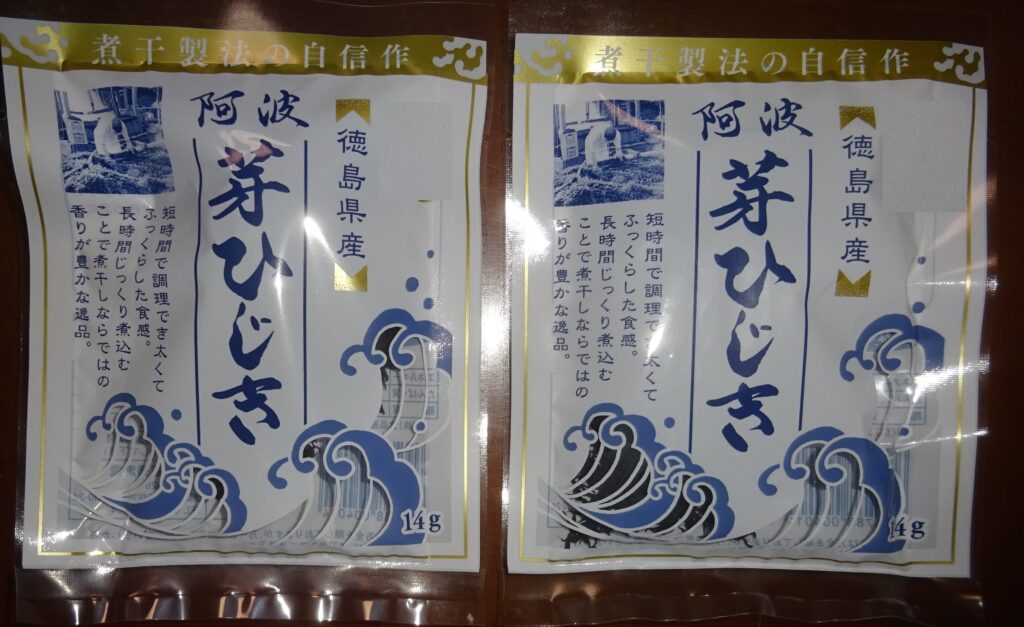 煮干製法の自信作
徳島県産
阿波
芽ひじき
短時間で調理でき太くて
ふっくらした食感。
長時間じっくり煮込む
ことで煮干しならではの
香りが豊かな逸品。
14g
煮干製法の自信作
徳島県産
阿波
芽ひじき
短時間で調理でき太くて
ふっくらした食感。
長時間じっくり煮込む
ことで煮干しならではの
香りが豊かな逸品。
14g